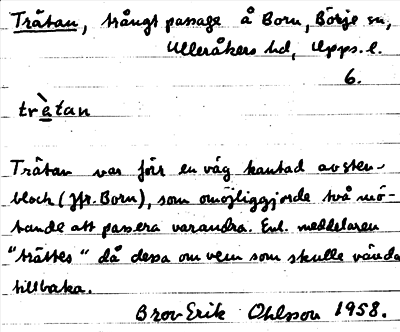 Trätan, trångt passage å Born, Börje sn,
Ulleråkers hd, Upps. l.
6.
trètan
Trätan var förr en väg kantad av sten-
block (jfr. Born), som omöjliggjorde två mö-
tande att passera varandra. Enl. meddelaren
"trättes" då dessa om vem som skulle vända
tillbaka.
Brov Erik Ohlsson 1958.